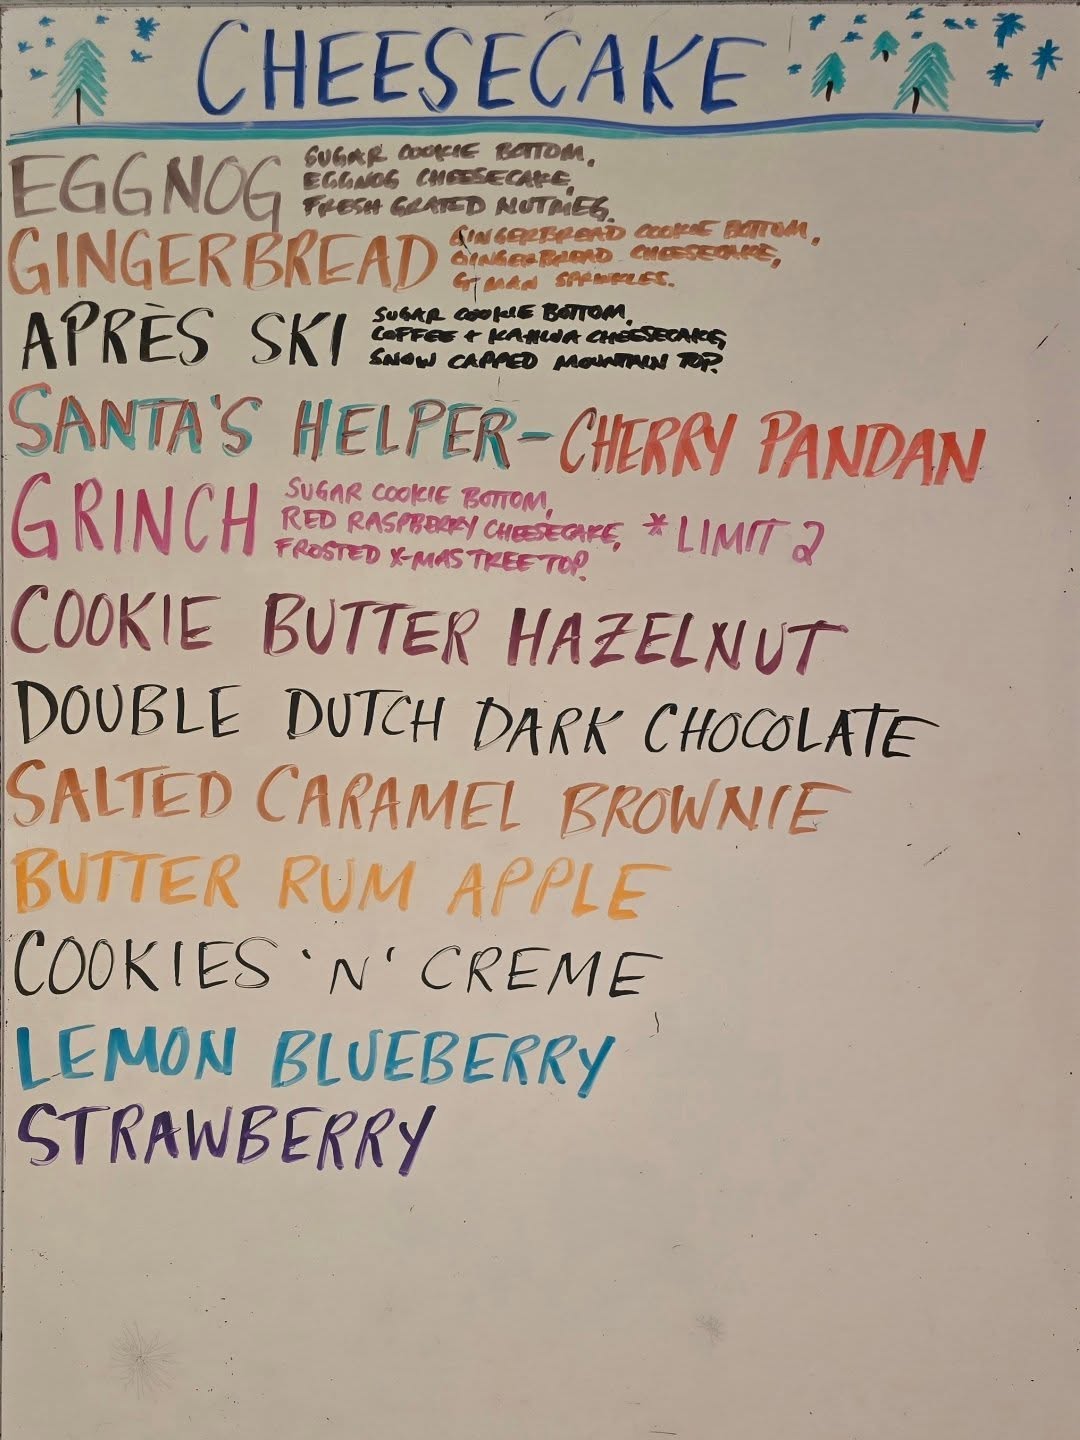 CHEESECAKE
EGGNOG
SUGAR COOKIE BOTTOM,
EGGNOG CHEESECAKE,
FRESH GRATED NUTMEG.
GINGERBREAD
GINGERBREAD COOKIE BOTTOM,
GINGERBREAD CHEESECAKE,
G-MAN SPRINKLES.
APRÈS SKI
SUGAR COOKIE BOTTOM,
COFFEE + KAHLUA CHEESECAKE,
SNOW CAPPED MOUNTAIN TOP.
SANTA'S HELPER - CHERRY PANDAN
GRINCH
SUGAR COOKIE BOTTOM,
RED RASPBERRY CHEESECAKE,
FROSTED X-MAS TREE TOP.
* LIMIT 2
COOKIE BUTTER HAZELNUT
DOUBLE DUTCH DARK CHOCOLATE
SALTED CARAMEL BROWNIE
BUTTER RUM APPLE
COOKIES 'N' CREME
LEMON BLUEBERRY
STRAWBERRY